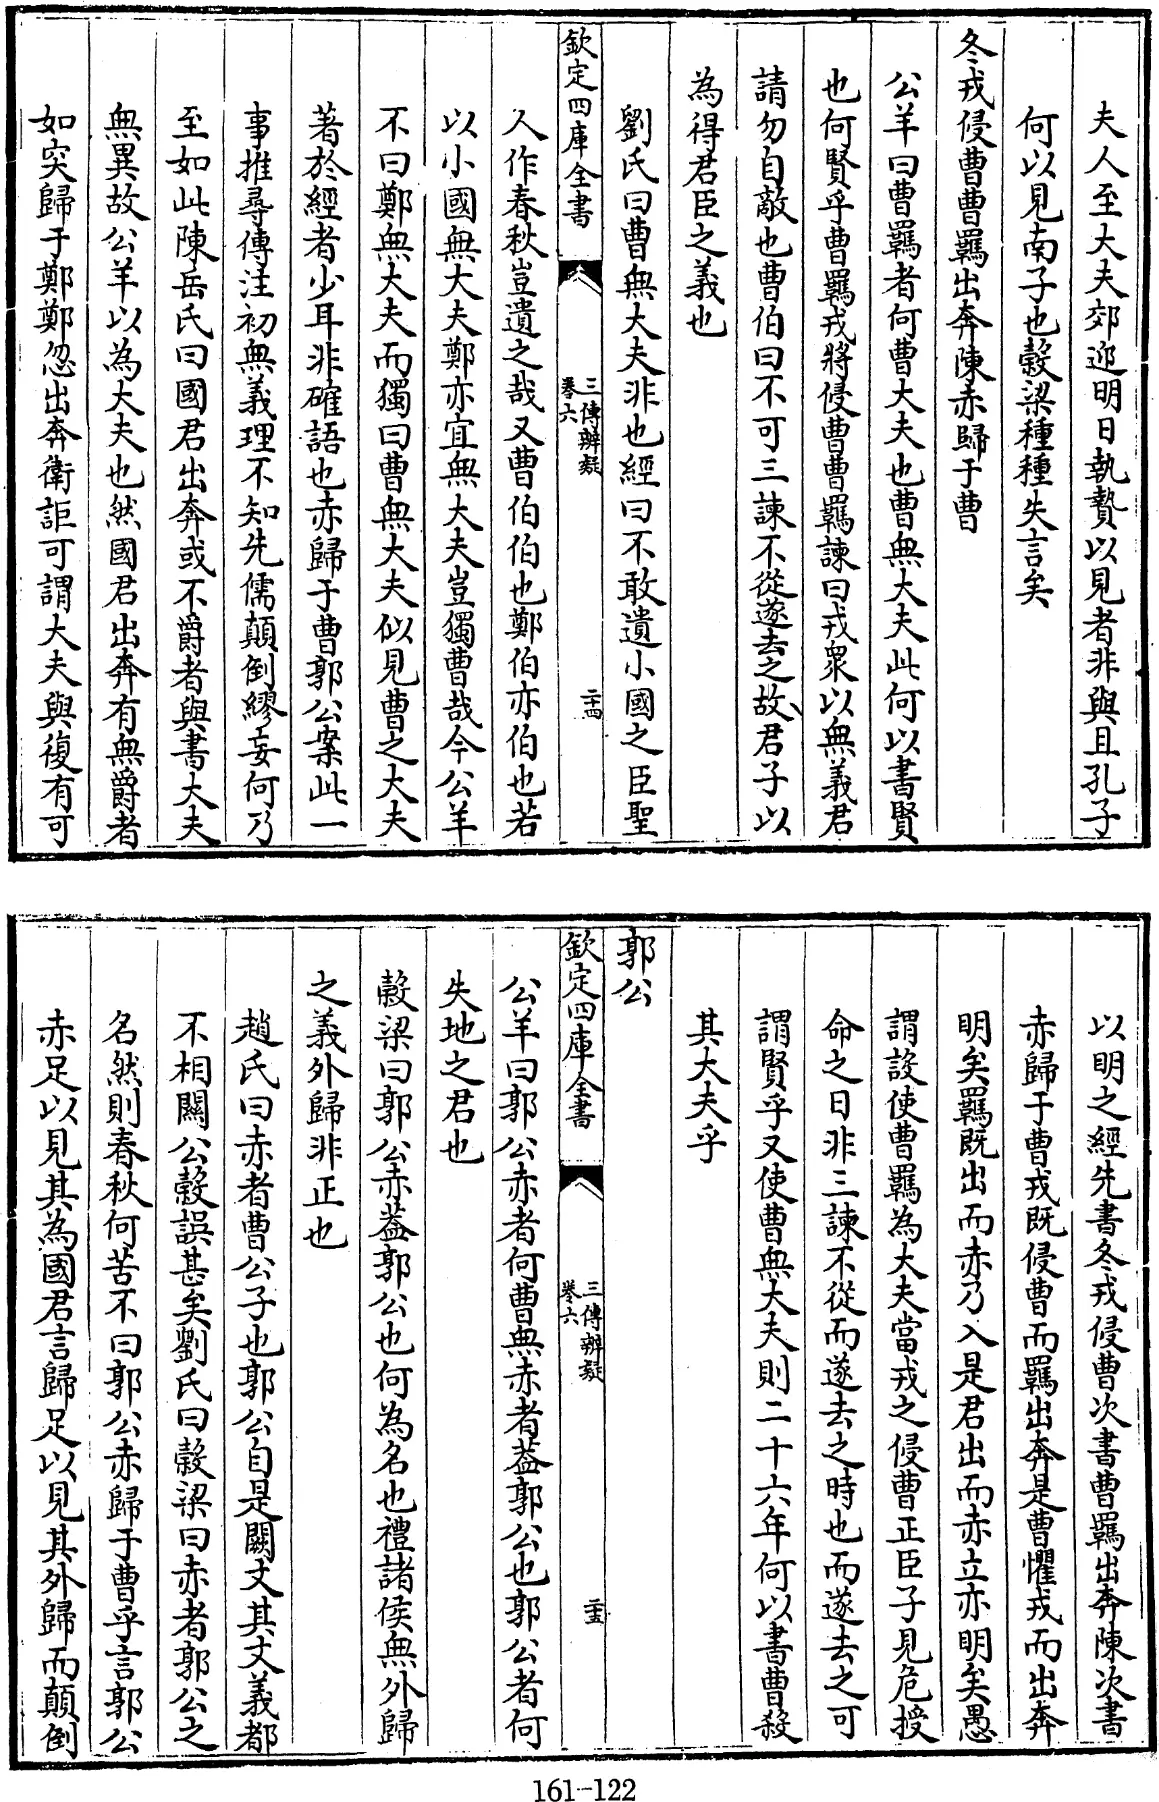 夫人至大夫郊迎明日執贄以見者非與且孔子
何以見南子也穀梁種種失言矣
冬戎侵曹曹羈出奔陳赤歸于曹
公羊曰曹羈者何曹大夫也曹無大夫此何以書賢
也何賢乎曹羈戎將侵曹曹羈諫曰戎衆以無義君
請勿自敵也曹伯曰不可三諫不從遂去之故君子以
為得君臣之義也
劉氏曰曹無大夫非也經曰不敢遺小國之臣聖
欽定四庫全書
三傳辨疑
卷六
二十四
人作春秋豈遺之哉又曹伯伯也鄭伯亦伯也若
以小國無大夫鄭亦宜無大夫豈獨曹哉今公羊
不曰鄭無大夫而獨曰曹無大夫似見曹之大夫
著於經者少耳非確語也赤歸于曹郭公案此一
事推尋傳注初無義理不知先儒顛倒繆妄何乃
至如此陳岳氏曰國君出奔或不爵者與書大夫
無異故公羊以為大夫也然國君出奔有無爵者
如突歸于鄭鄭忽出奔衛詎可謂大夫與復有可
以明之經先書冬戎侵曹次書曹羈出奔陳次書
赤歸于曹戎既侵曹而羈出奔是曹懼戎而出奔
明矣羈既出而赤乃入是君出而赤立亦明矣愚
謂設使曹羈為大夫當戎之侵曹正臣子見危授
命之日非三諫不從而遂去之時也而遂去之可
謂賢乎又使曹無大夫則二十六年何以書曹殺
其大夫乎
郭公
欽定四庫全書
三傳辨疑
卷六
二十五
公羊曰郭公赤者何曹無赤者葢郭公也郭公者何
失地之君也
穀梁曰郭公赤葢郭公也何為名也禮諸侯無外歸
之義外歸非正也
趙氏曰赤者曹公子也郭公自是闕文其文義都
不相關公穀誤甚矣劉氏曰穀梁曰赤者郭公之
名然則春秋何苦不曰郭公赤歸于曹乎言郭公
赤足以見其為國君言歸足以見其外歸而顛倒
161-122